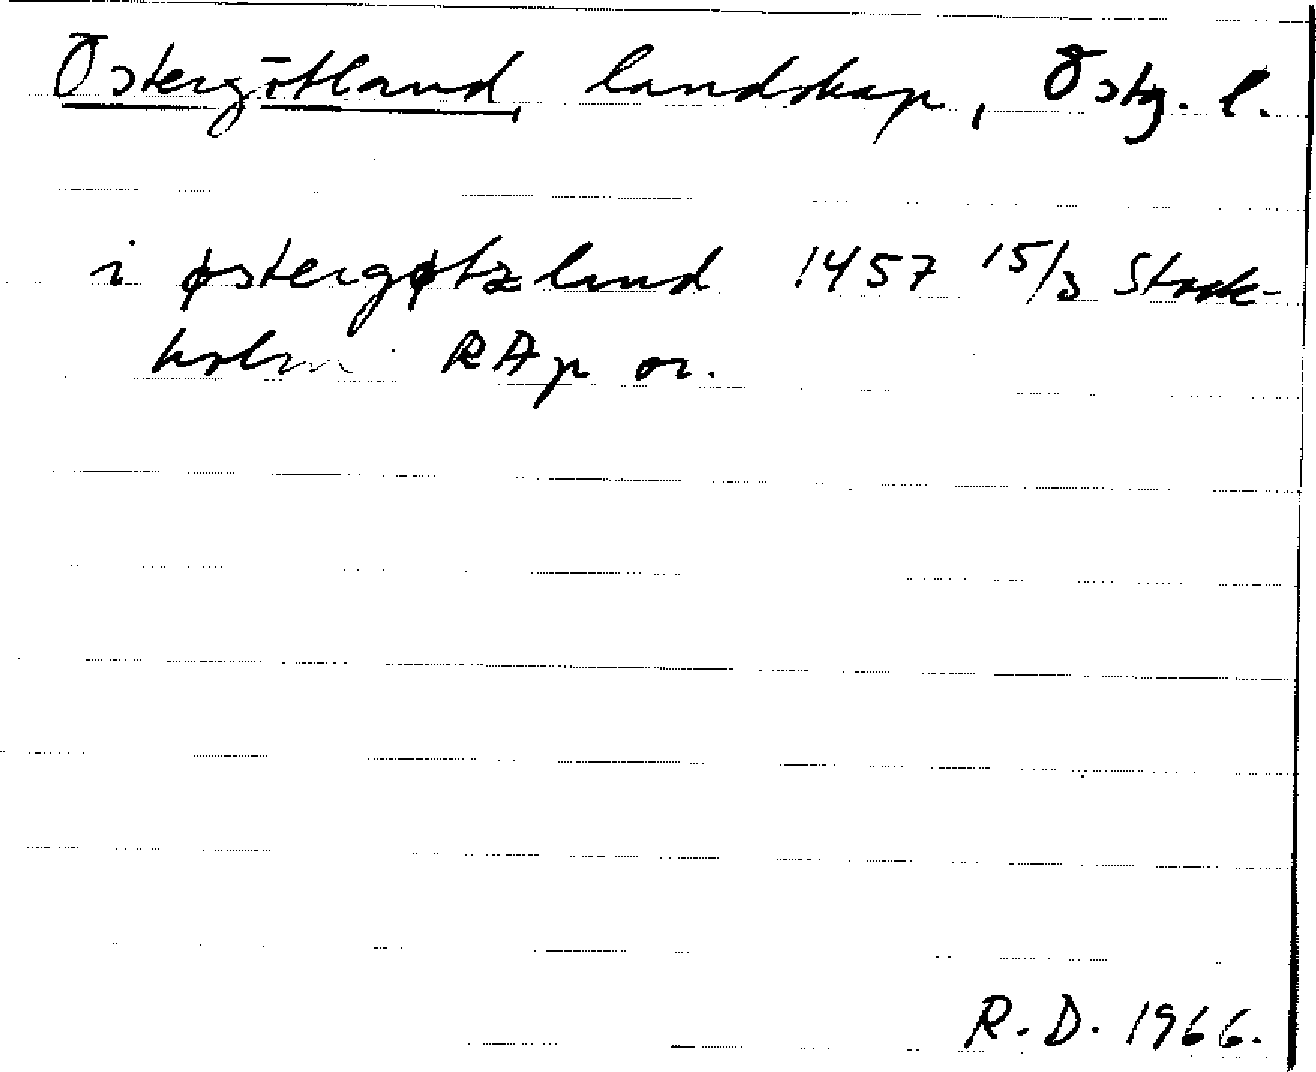 Östergötland, landskap, Östg. l.
i østergøtzland 1457 15/3 Stock-
holm RAp or.
R. D. 1966.